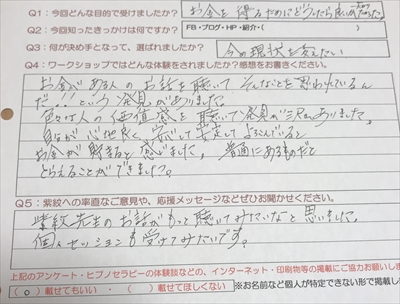 Q1：今回どんな目的で受けましたか？ お金を得るためにどうしたら良いか
Q2：今回知ったきっかけは何ですか？ FB・ブログ・HP・紹介・(
Q3：何が決め手となって、選ばれましたか？ 今の現状を変えたい
Q4：ワークショップではどんな体験をされましたか？感想をお書きください。
お金がある人のお話を聴いてそんなことを思われているん
だ!!…という発見がありました。
色々な人の価値感を聴いて発見が沢山ありました。
自分が心地良く、安心して安定してよろこんでいると
お金が貯まると感じました。普通にあるものだと
とらえることができました。
Q5：紫紋への率直なご意見や、応援メッセージなどぜひお聞かせください。
紫紋先生のお話がもって聴いてみたいなと思いました。
個人セッションも受けてみたいです。
上記のアンケート・ヒプノセラピーの体験談などの、インターネット・印刷物等の掲載にご協力お願いしま
（ ○ ）載せてもいい・（ ）載せてほしくない ※お名前など個人が特定できない形で掲載し